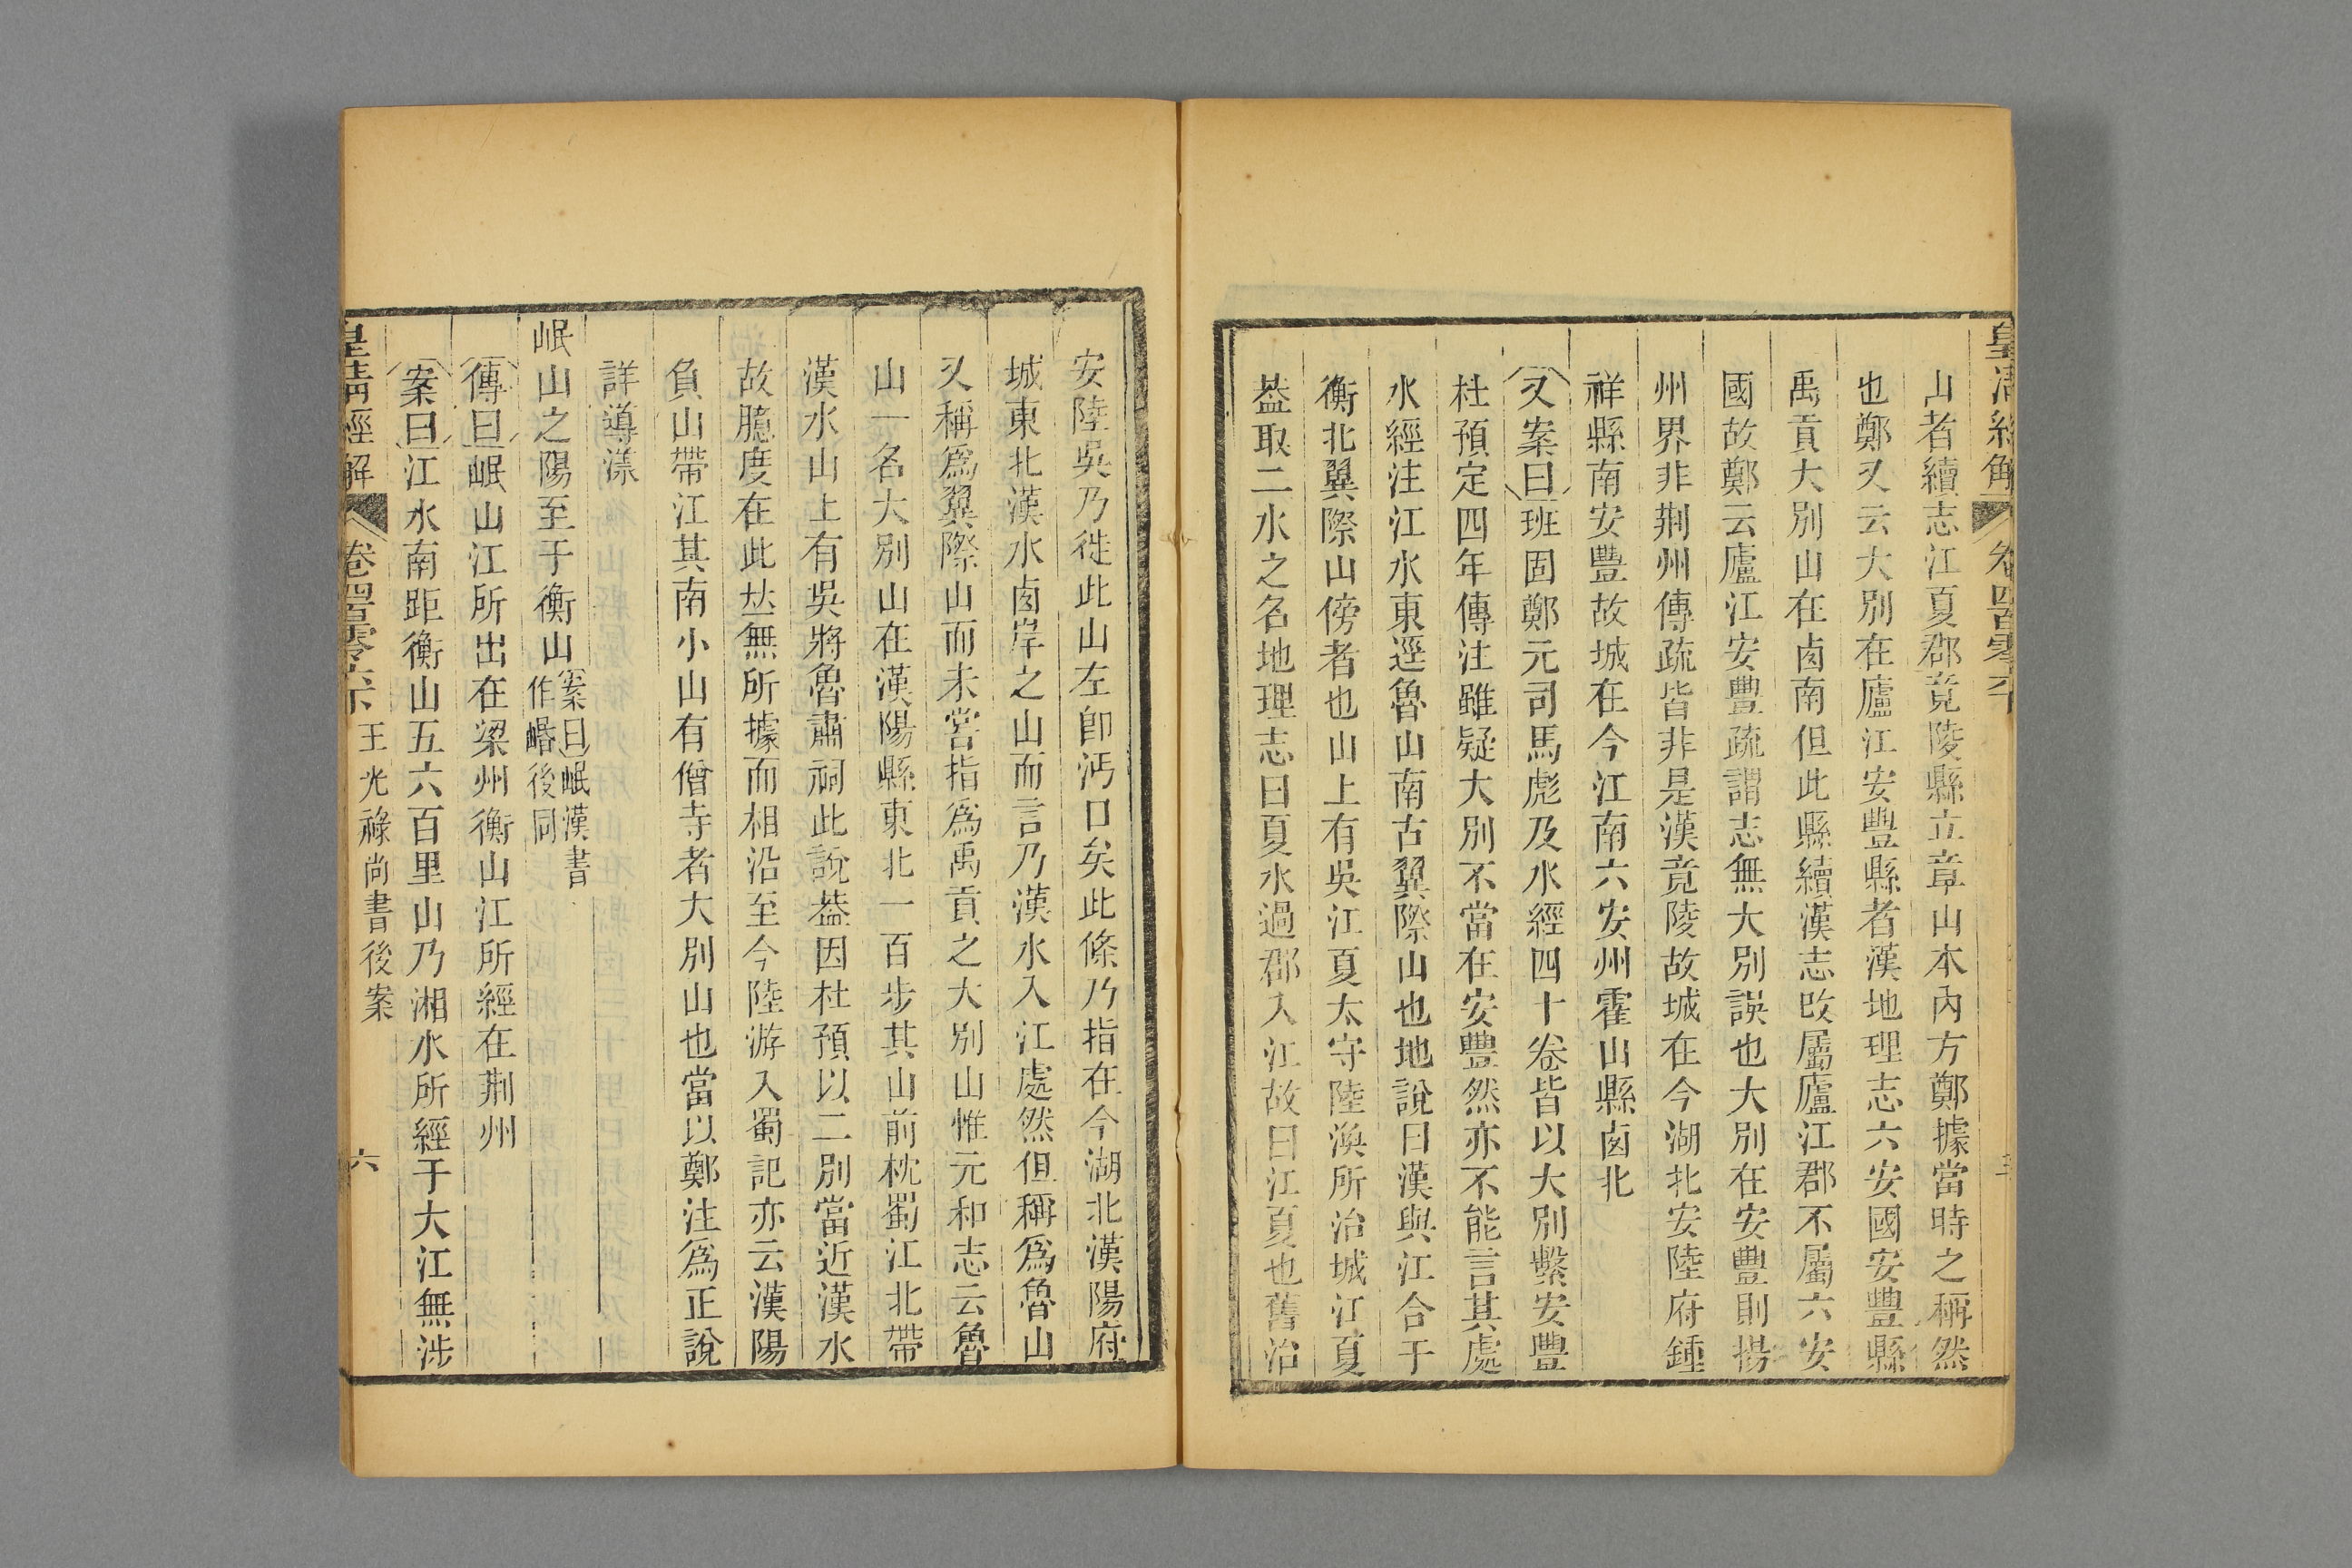 皇清經解
卷四百零六下
山者續志江夏郡竟陵縣立章山本內方鄭據當時之稱然
也鄭又云大別在廬江安豐縣者漢地理志六安國安豐縣
禹貢大別山在卤南但此縣續漢志改屬廬江郡不屬六安
國故鄭云廬江安豐疏謂志無大別誤也大別在安豐則揚
州界非荆州傳疏皆非是漢竟陵故城在今湖北安陸府鍾
祥縣南安豐故城在今江南六安州霍山縣卤北
又案曰班固鄭元司馬彪及水經四十卷皆以大別繫安豐
杜預定四年傳注雖疑大別不當在安豐然亦不能言其處
水經注江水東逕魯山南古翼際山也地說曰漢與江合于
衡北翼際山傍者也山上有吳江夏太守陸渙所治城江夏
葢取二水之名地理志曰夏水過郡入江故曰江夏也舊治
安陸吳乃徙此山左卽沔口矣此條乃指在今湖北漢陽府
城東北漢水卤岸之山而言乃漢水入江處然但稱爲魯山
又稱爲翼際山而未嘗指爲禹貢之大別山惟元和志云魯
山一名大別山在漢陽縣東北一百步其山前枕蜀江北帶
漢水山上有吳將魯肅祠此說葢因杜預以二別當近漢水
故臆度在此𠀤無所據而相沿至今陸游入蜀記亦云漢陽
負山帶江其南小山有僧寺者大別山也當以鄭注爲正說
詳導漾
岷山之陽至于衡山案曰岷漢書
作㟭後同
傳曰岷山江所出在梁州衡山江所經在荆州
案曰江水南距衡山五六百里山乃湘水所經于大江無涉
皇清經解
卷四百零六下
王光祿尚書後案
六